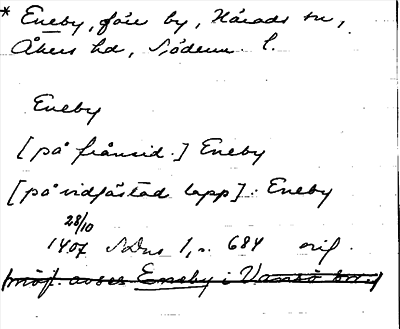 * Eneby, förr by, Härads sn,
Åkers hd, Söderm. l.
Eneby
[på frånsid.] Eneby
[på vidfästad lapp]: Eneby
28/10
1407 SDns 1, s. 684 orig.
möjl. avses Eneby i Vansö sn